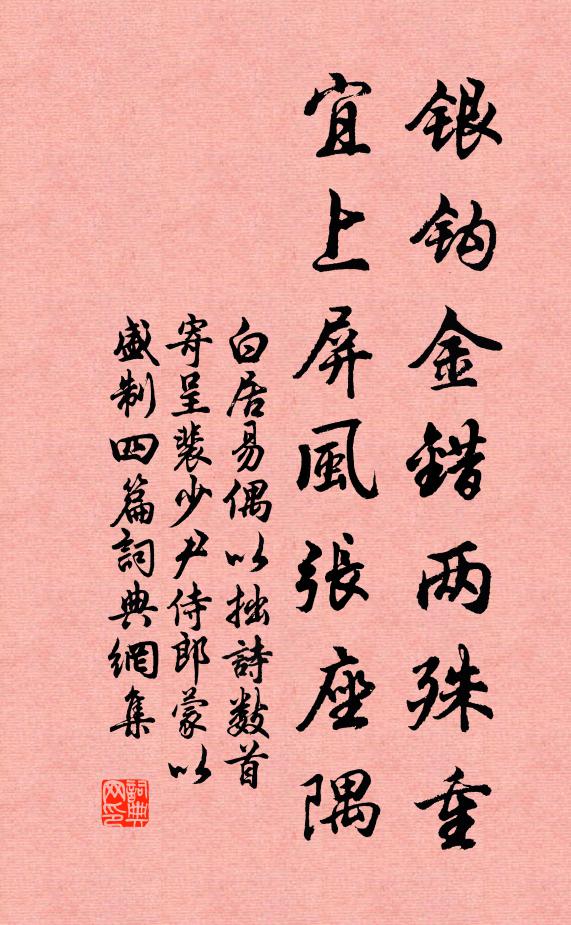 银钩金错两殊重
宜上屏風張座隅
白居易偶以拙詩数首
寄呈裴少尹侍郎蒙以
盛制四篇詞典網集
詞典网印